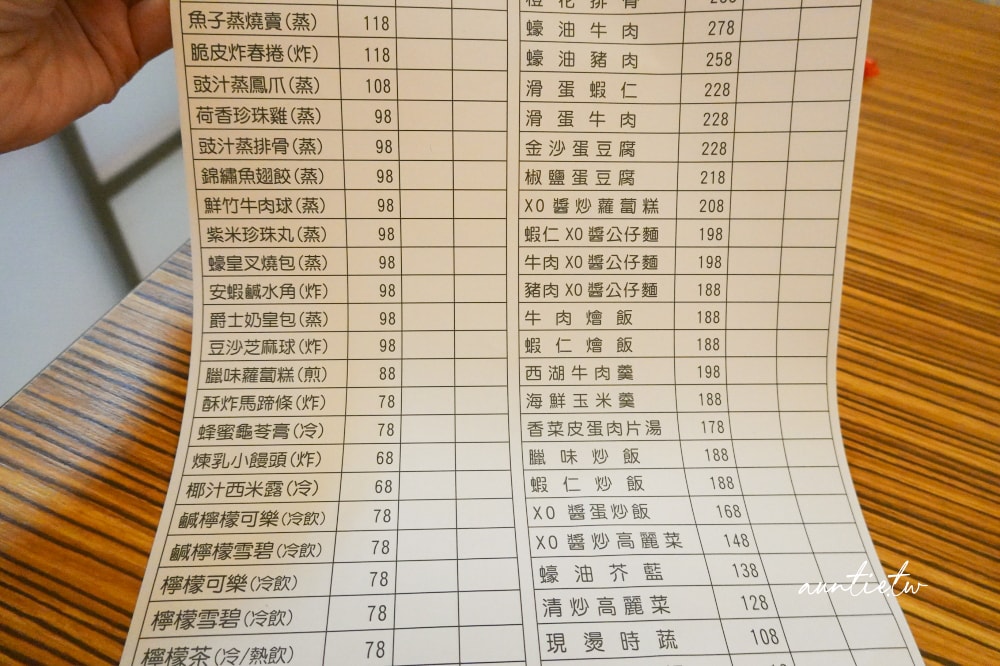 魚子蒸燒賣(蒸) 118
脆皮炸春捲(炸) 118
豉汁蒸鳳爪(蒸) 108
荷香珍珠雞(蒸) 98
豉汁蒸排骨(蒸) 98
錦繡魚翅餃(蒸) 98
鮮竹牛肉球(蒸) 98
紫米珍珠丸(蒸) 98
蠔皇叉燒包(蒸) 98
安蝦鹹水角(炸) 98
爵士奶皇包(蒸) 98
豆沙芝麻球(炸) 98
臘味蘿蔔糕(煎) 88
酥炸馬蹄條(炸) 78
蜂蜜龜苓膏(冷) 78
煉乳小饅頭(炸) 68
椰汁西米露(冷) 68
鹹檸檬可樂(冷飲) 78
鹹檸檬雪碧(冷飲) 78
檸檬可樂(冷飲) 78
檸檬雪碧(冷飲) 78
檸檬茶(冷/熱飲) 78
蠔油牛肉 278
蠔油豬肉 258
滑蛋蝦仁 228
滑蛋牛肉 228
金沙蛋豆腐 228
椒鹽蛋豆腐 218
XO醬炒蘿蔔糕 208
蝦仁XO醬公仔麵 198
牛肉XO醬公仔麵 198
豬肉XO醬公仔麵 188
牛肉燴飯 188
蝦仁燴飯 188
西湖牛肉羹 198
海鮮玉米羹 188
香菜皮蛋肉片湯 178
臘味炒飯 188
蝦仁炒飯 188
XO醬蛋炒飯 168
XO醬炒高麗菜 148
蠔油芥藍 138
清炒高麗菜 128
現燙時蔬 108
auntietw